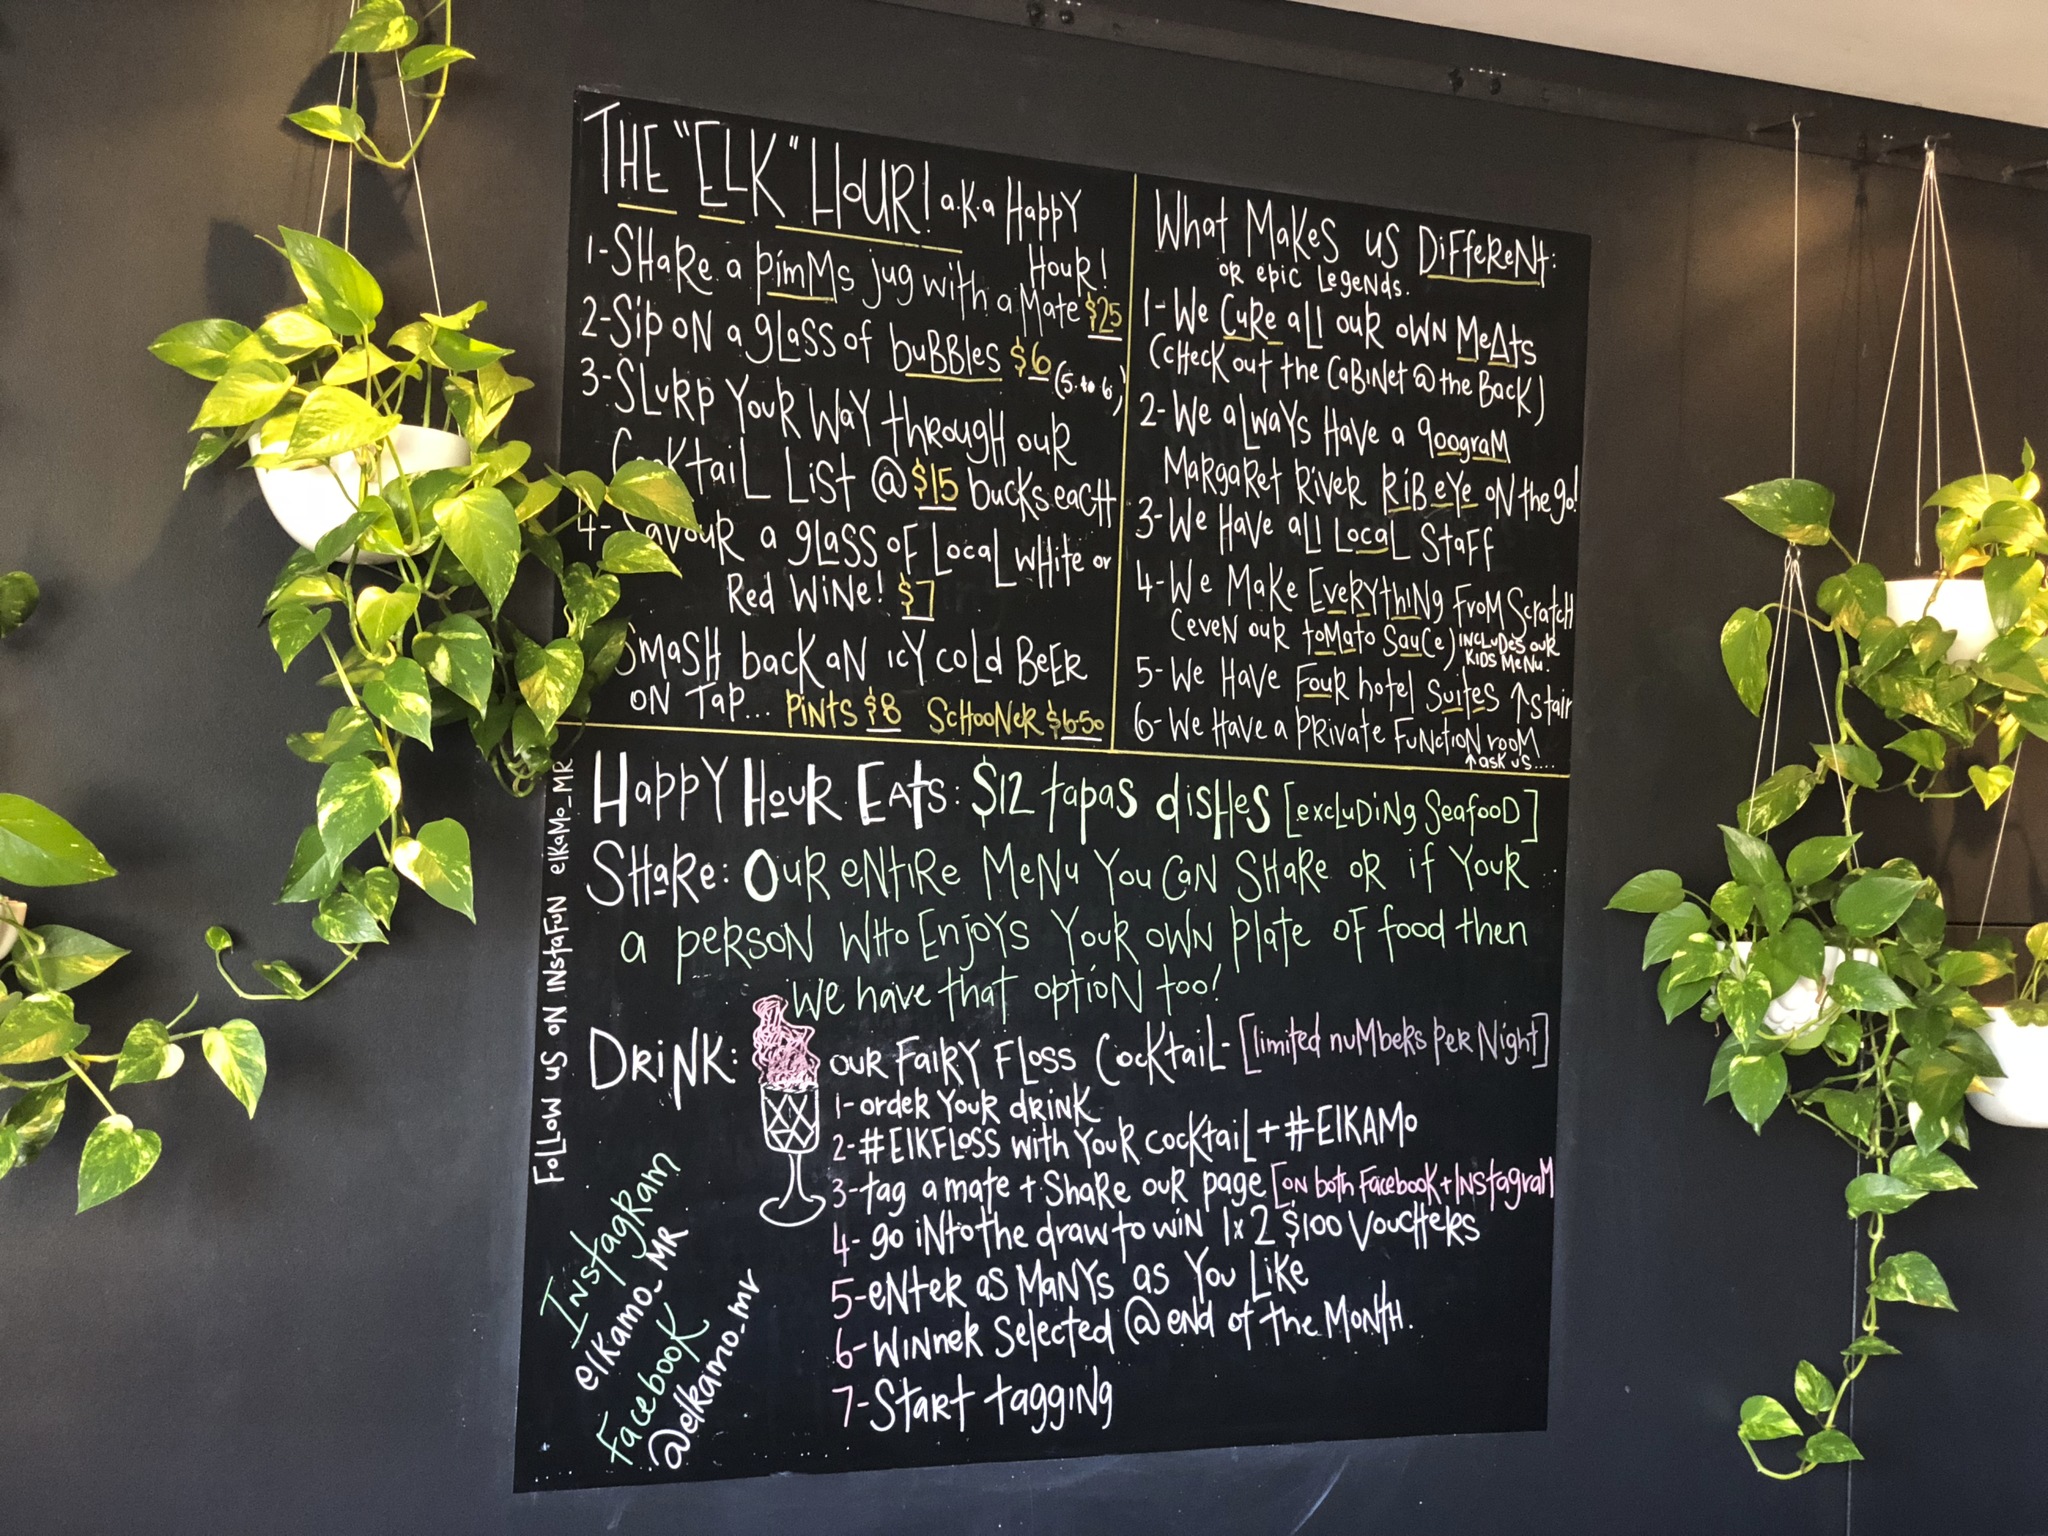 THE "ELK" HOUR! a.k.a HAPPY HOUR!
1-SHARE a PIMMs jug with a Mate $25
2-Sip ON a glass of bubbles $6 (5 to 6)
3-SLURP YOUR WAY through our
Cocktail List @ $15 bucks each
4- Savour a glass of Local white or
Red Wine! $7
Smash back an icy cold Beer
on Tap... Pints $8 Schooner $6.50
What Makes us Different:
or epic Legends.
1-We Cure all our own Meats
(check out the Cabinet @ the Back)
2-We always have a 900gram
Margaret River Ribeye on the go!
3-We Have all Local Staff
4-We Make Everything From Scratch
(even our tomato Sauce) includes our
kids menu.
5-We Have Four hotel Suites ↑stair
6-We Have a Private Function room
↑ask us....
Happy Hour Eats: $12 tapas dishes [excluding Seafood]
Share: Our entire Menu You Can Share or if Your
a person who Enjoys Your own plate of food then
We have that option too!
Drink: our Fairy Floss Cocktail- [limited numbers per Night]
1-order Your drink
2-#ElKFLoss with Your cocktail + #ElKAMo
3-tag a mate + Share our page [on both Facebook+Instagram
4-go into the draw to win 1x2 $100 Vouchers
5-enter as Manys as You Like
6-Winner Selected @ end of the Month.
7-Start tagging
Follow us on Instafun elkamo_MR
Instagram
elkamo_MR
Facebook
@elkamo_mr